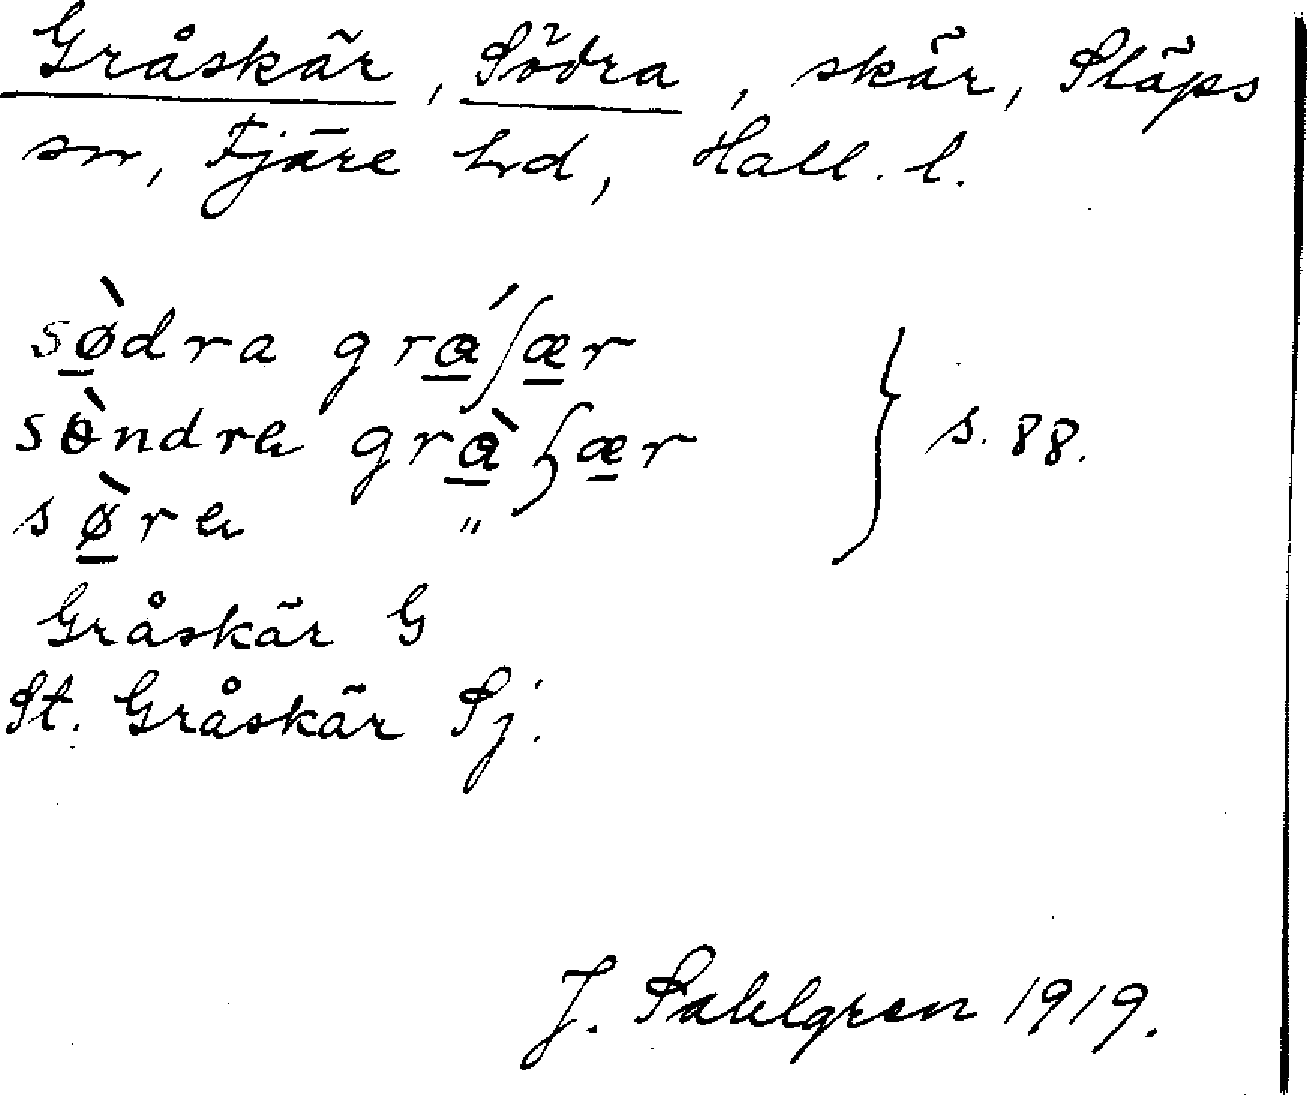 Gråskär, Södra, skär, Släps
sn, Fjäre hd, Hall. l.
sø̀dra grɑ́ʃær
sɵ̀ndra grɑ̀ʃær } s. 88.
sø̀ra "
Gråskär G
St. Gråskär Sj.
J. Sahlgren 1919.